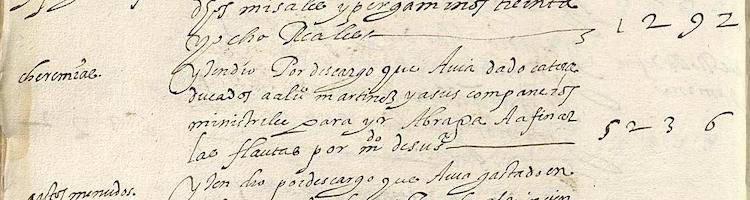 dos misales y pergaminos treinta
y ocho Reales 1292
cheremias. Yten dio Por descargo que Avia dado catorze
ducados a alº martinez y a sus companeros
ministriles para yr Abrapa A afinar
las flautas por mdo de su sª 5236
gastos menudos. Yten dio por descargo que Avia gastado en